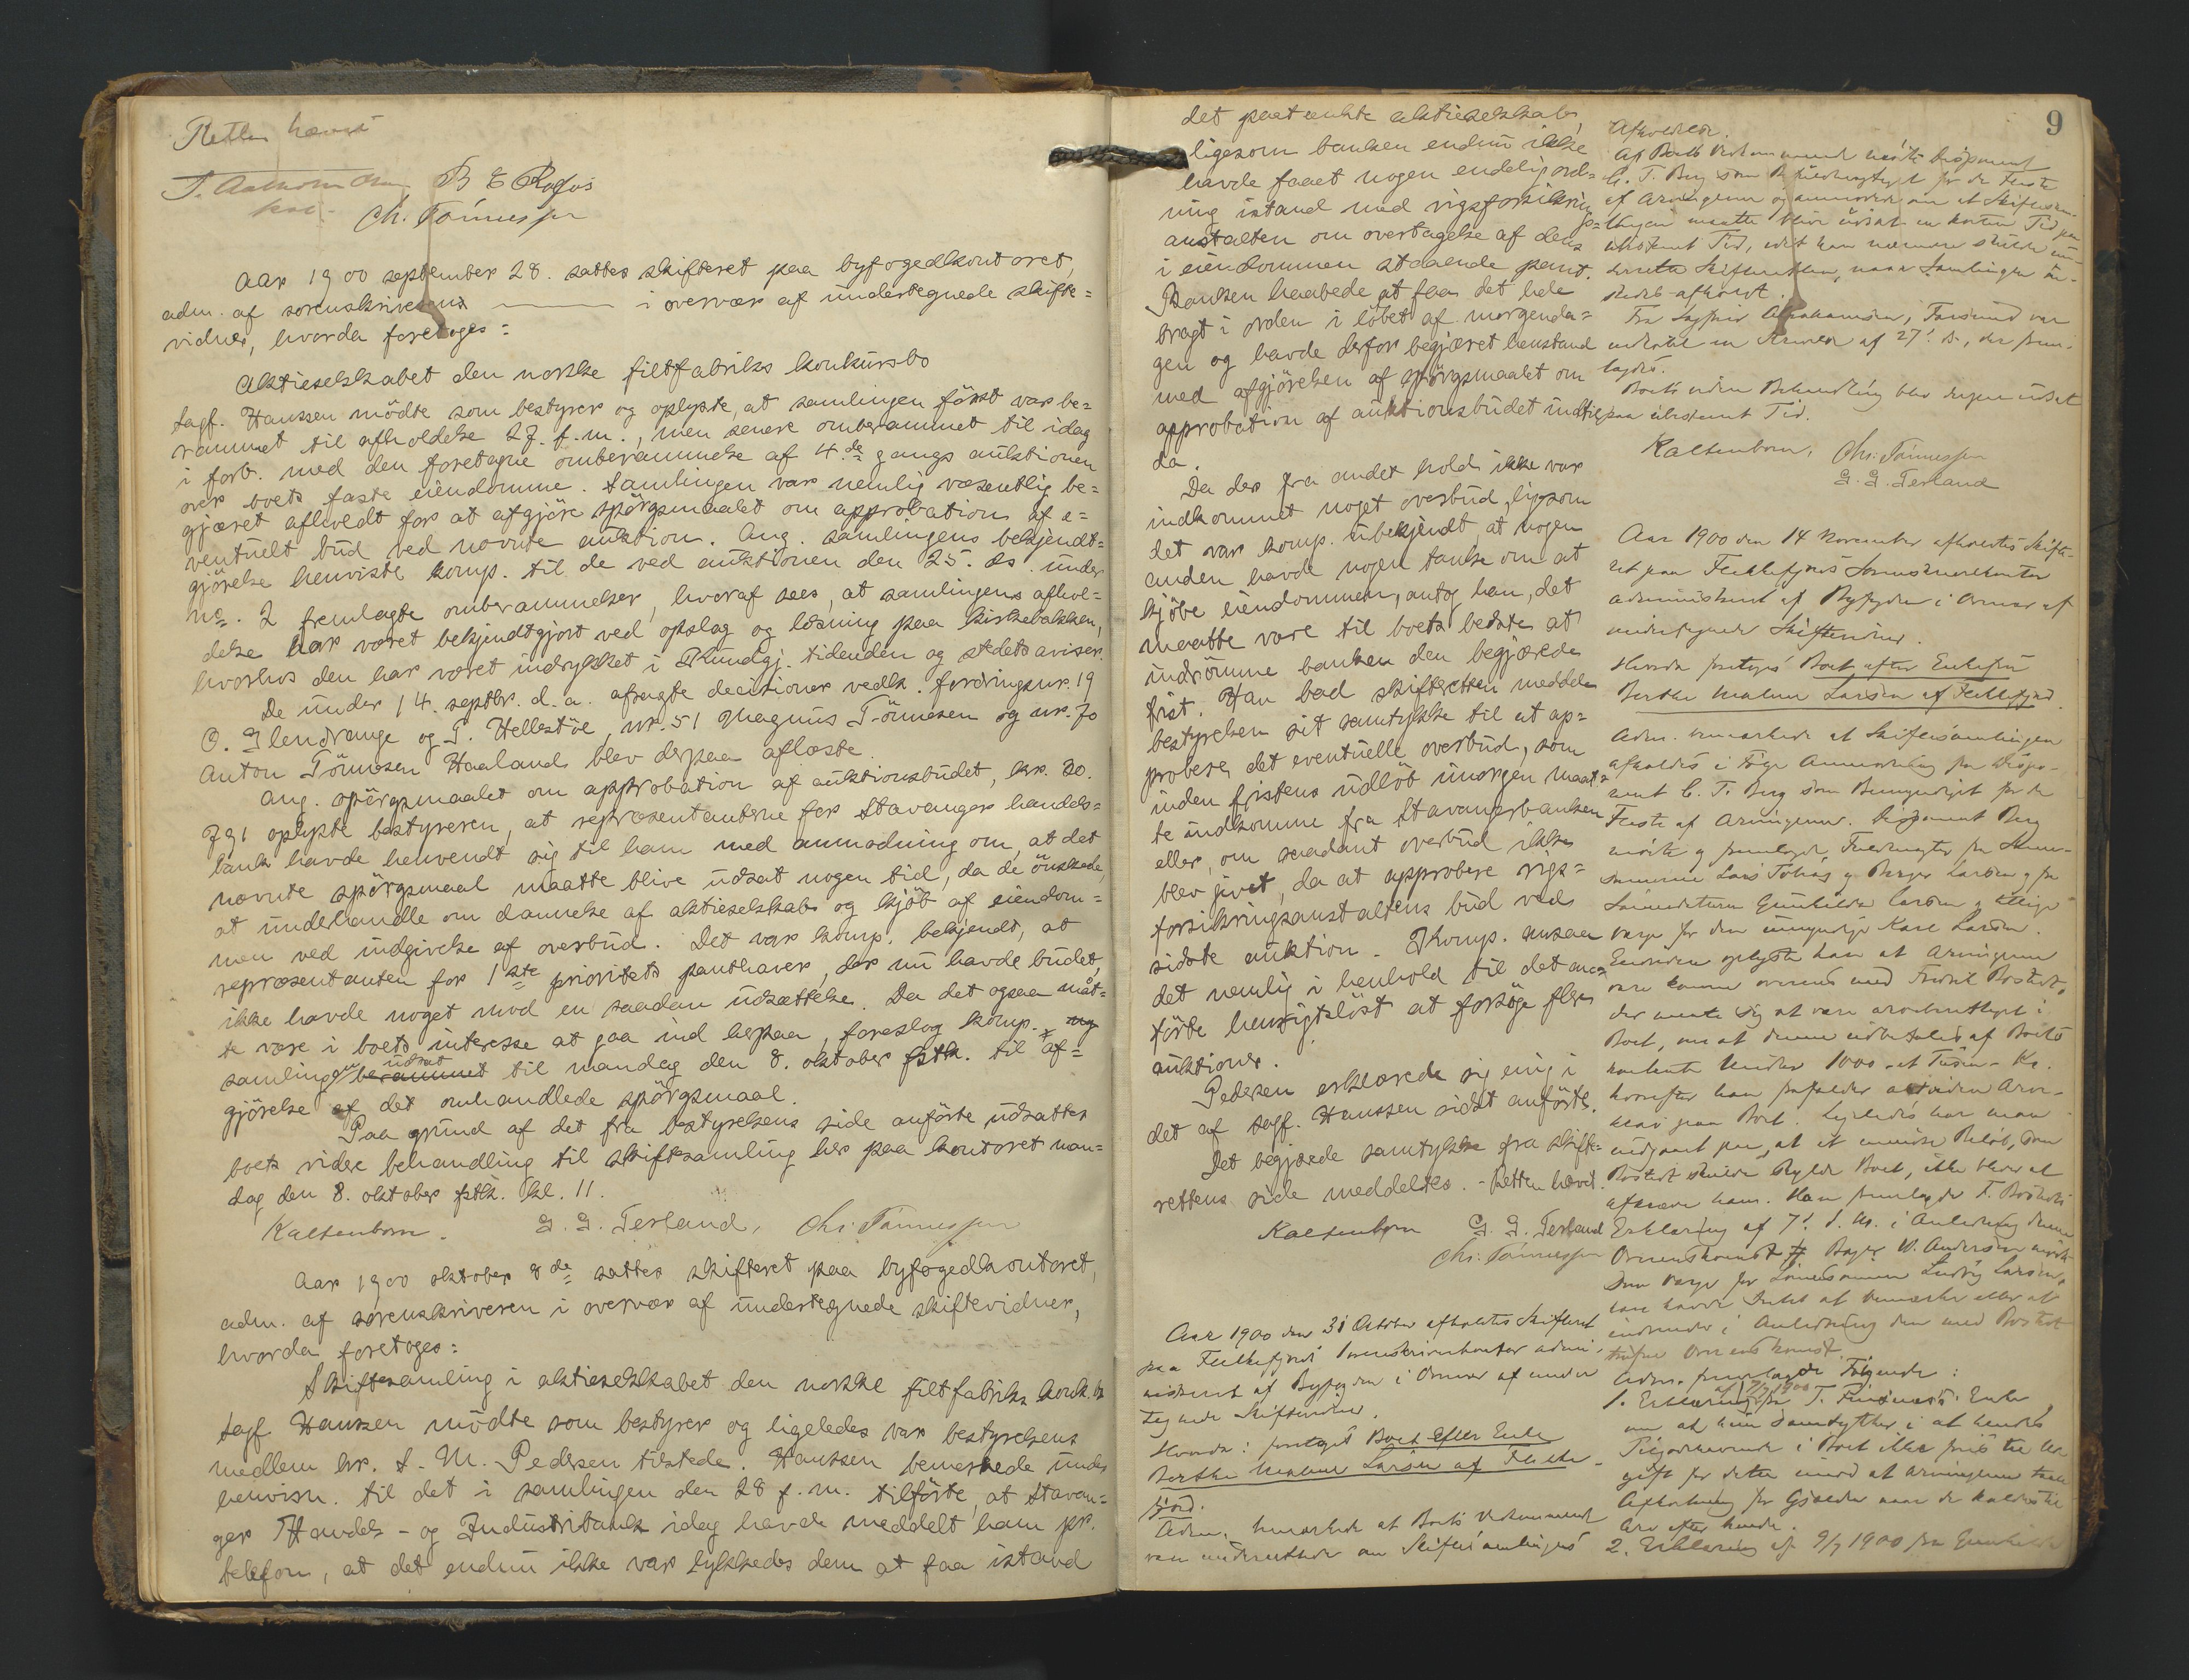 Retten hævet
T. Aanensen
B E Rafos
Ch. Tönnessen
Aar 1900 september 28. sattes skifteret paa byfogedkontoret,
adm. af sorenskriveren i overvær af undertegnede skifte=
vidner, hvorda foretoges:
Aktieselskabet den norske filtfabriks konkursbo
Sagf. Hanssen mödte som bestyrer og oplyste, at samlingen först var be=
rammet til afholdelse 27. f.m., men senere omberammet til idag
i forb. med den foretagne omberammelse af 4.de gangs auktionen
over boets faste eiendomme. Samlingen var nemlig væsentlig be=
gjæret afholdt for at afgjöre spörgsmaalet om approbation af e=
ventuelt bud ved nævnte auktion. Ang. samlingens bekjendt=
gjörelse henviste komp. til de ved auktionen den 25. ds. under
No. 2 fremlagte omberammelser, hvoraf sees, at samlingens afhol=
delse har været bekjendtgjort ved opslag og læsning paa kirkebakken,
hvorhos den har været indrykket i Kundgj. tidenden og stedets aviser.
De under 14. septbr. d.a. afsagte decisioner vedk. fordringsnr. 19
O. Glendrange og T. Hellestöe, nr. 51 Magnus Tönnesen og nr. 70
Anton Tönnesen Haaland blev derpaa aflæste.
Ang. spörgsmaalet om approbation af auktionsbudet, kr. 30.
791 oplyste bestyreren, at repræsentanterne for Stavanger handels=
bank havde henvendt sig til ham med anmodning om, at det
nævnte spörgsmaal maatte blive udsat nogen tid, da de önskede
at underhandle om dannelse af aktieselskab og kjöb af eiendom=
men ved indgivelse af overbud. Det var komp. bekjendt, at
repræsentanten for 1ste prioritets panthaver, der nu havde budet,
ikke havde noget mod en saadan udsættelse. Da det ogsaa maat=
te være i boets interesse at gaa ind herpaa, foreslog komp. ny
samlingen berammet udsat til mandag den 8. oktober fstk. til af=
gjörelse af det omhandlede spörgsmaal.
Paa grund af det fra bestyrelsens side anförte udsattes
boets videre behandling til skiftesamling her paa kontoret man=
dag den 8. oktober fstk. kl. 11.
Kaltenborn. G. G. Tesland, Chr. Tönnessen
Aar 1900 oktober 8de sattes skifteret paa byfogedkontoret,
adm. af sorenskriveren i overvær af undertegnede skiftevidner,
hvorda foretoges:
Skiftesamling i aktieselskabet den norske filtfabriks konk.bo
Sagf. Hanssen mödte som bestyrer og ligeledes var bestyrelsens
medlem hr. S. M. Pedersen tilstede. Hanssen bemerkede under
henvisn. til det i samlingen den 28 f.m. tilförte, at Stavan=
ger Handels- og Industribank idag havde meddelt ham pr.
telefon, at det endnu ikke var lykkedes dem at faa istand
det paatænkte aktieselskab,
ligesom banken endnu ikke
havde faaet nogen endelig ord=
ning istand med rigsforsikrings=
anstalten om overtagelse af dens
i eiendommen staaende pant.
Banken haabede at faa det hele
bragt i orden i löbet af morgenda=
gen og havde derfor begjæret henstand
med afgjörelsen af spörgsmaalet om
approbation af auktionsbudet indtil
da.
Da der fra andet hold ikke var
indkommet noget overbud, ligesom
det var komp. ubekjendt, at nogen
anden havde nogen tanke om at
kjöbe eiendommen, antog han, det
maatte være til boets bedste at
indrömme banken den begjærede
frist. Han bad skifteretten meddele
bestyrelsen sit samtykke til at ap=
probere det eventuelle overbud, som
inden fristens udlöb imorgen maat=
te indkomme fra Stavangerbanken
eller, om saadant overbud ikke
blev givet, da at approbere rigs=
forsikringsanstaltens bud ved
sidste auktion. Komp. ansaa
det nemlig i henhold til det an=
förte hensigtslöst at forsöge flere
auktioner.
Pedersen erklærede sig enig i
det af sagf. Hanssen sidst anförte.
Det begjærede samtykke fra skifte=
rettens side meddeltes. - Retten hævet.
Kaltenborn G. G. Tesland
Chr. Tönnessen
Aar 1900 den 31 October afholdtes Skifteret
paa Flekkefjords Sorenskriverkontor admi-
nistreret af Byfogden i Overvær af under
tegnede Skiftevidner.
Hvorda: foretoges Boet efter Enke
Berthe Malene Larsen af Flekke-
fjord.
Adm. bemærkede at Boets Vedkommende
var underrettede om Skiftesamlingens
9
Afholdelse.
Af Boets Vedkommende mödte
C. T. Berg som Befuldmægtiget for de fleste
af Arvingerne og anmodede om at Skiftesam-
lingen maatte blive udsat en kortere Tid paa
ubestemt Tid, idet han nærmere skulde un-
derrette Skifteretten, naar Samlingen ön-
skedes afholdt.
Fra Sagförer Abrahamsen, Farsund var
indkommet en Skrivelse af 27. ds., der frem-
lagdes.
Boets videre Behandling blev derpaa udsat
paa ubestemt Tid.
Kaltenborn, Chr. Tönnessen
G. G. Tesland
Aar 1900 den 14 November afholdtes Skifte-
ret paa Flekkefjords Sorenskriverkontor
administreret af Byfogden i Overvær af
undertegnede Skiftevidner.
Hvorda foretoges Boet efter Enkefru
Berthe Malene Larsen af Flekkefjord.
Adm. bemærkede at Skiftesamlingen
afholdes i Fölge Anmodning fra
C. T. Berg som Bemyndiget for de
Fleste af Arvingerne. Berg
mödte og fremlagde Fuldmagter fra
Lars Tobias og Berge Larsen og fra
Gunhilda Larsen
Værge for den umyndige Karl Larsen.
Endvidere oplyste han at Arvingerne
vare komne overens med Fredrik Bostedt,
der mente sig at være arveberettiget i
Boet, om at denne udbetales af Boets
kontante Midler 1000 - et Tusen - Kr.
hvorefter han frafalder al videre Arve-
krav paa Boet. Ligeledes har man
at et mindre Belöb, som
Bostedt skulde skylde Boet, ikke bliver at
afkræve ham. Han fremlagde F. Bostedts
Erklæring af 7. d.M. i Anledning denne
Overenskomst. W. Andersen mödte
som Værge for Ludvig Larsen,
havde Intet at bemærke eller at
indvende i Anledning den med Bostedt
trufne Overenskomst.
Adm. fremlagde Fölgende:
1. Erklæring af 9/7 1900 fra T. Enke
om at hun samtykker i at hendes
Tilgodehavende i Boet ikke
imod at Arvingerne
for
Arv efter hende.
2. Erklæring af 9/7 1900 fra Gunhilde